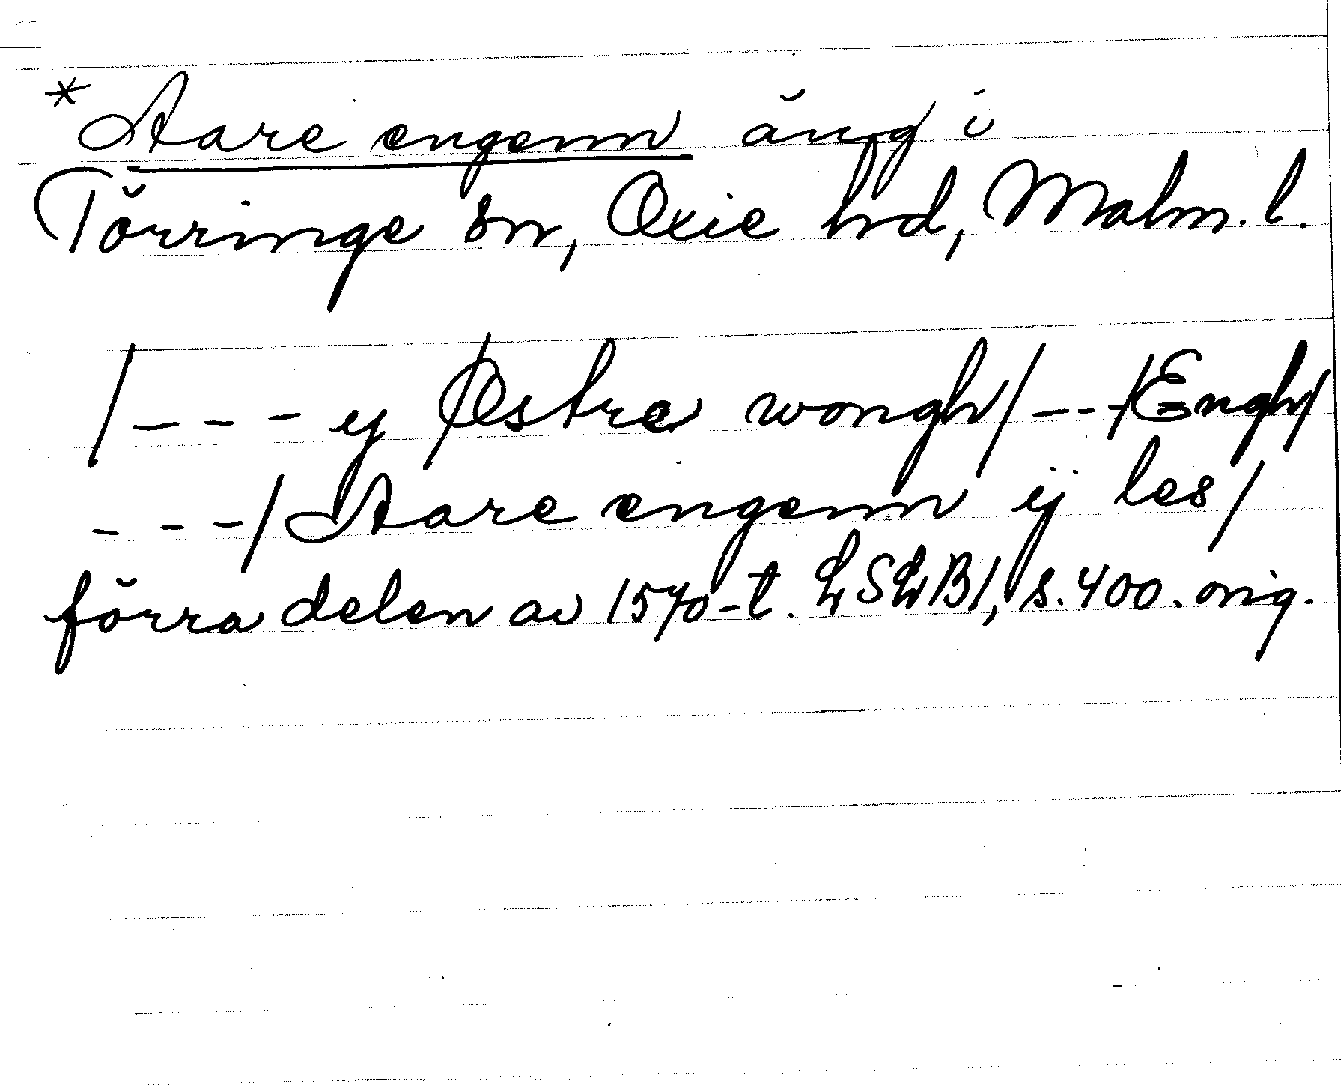 * Aare engenn äng i
Törringe sn, Oxie hd, Malm. l.
/--- y Østre wongh/---/Engh/
---/Aare engenn ij les/
förra delen av 1570-t. LSLB1, s. 400. orig.